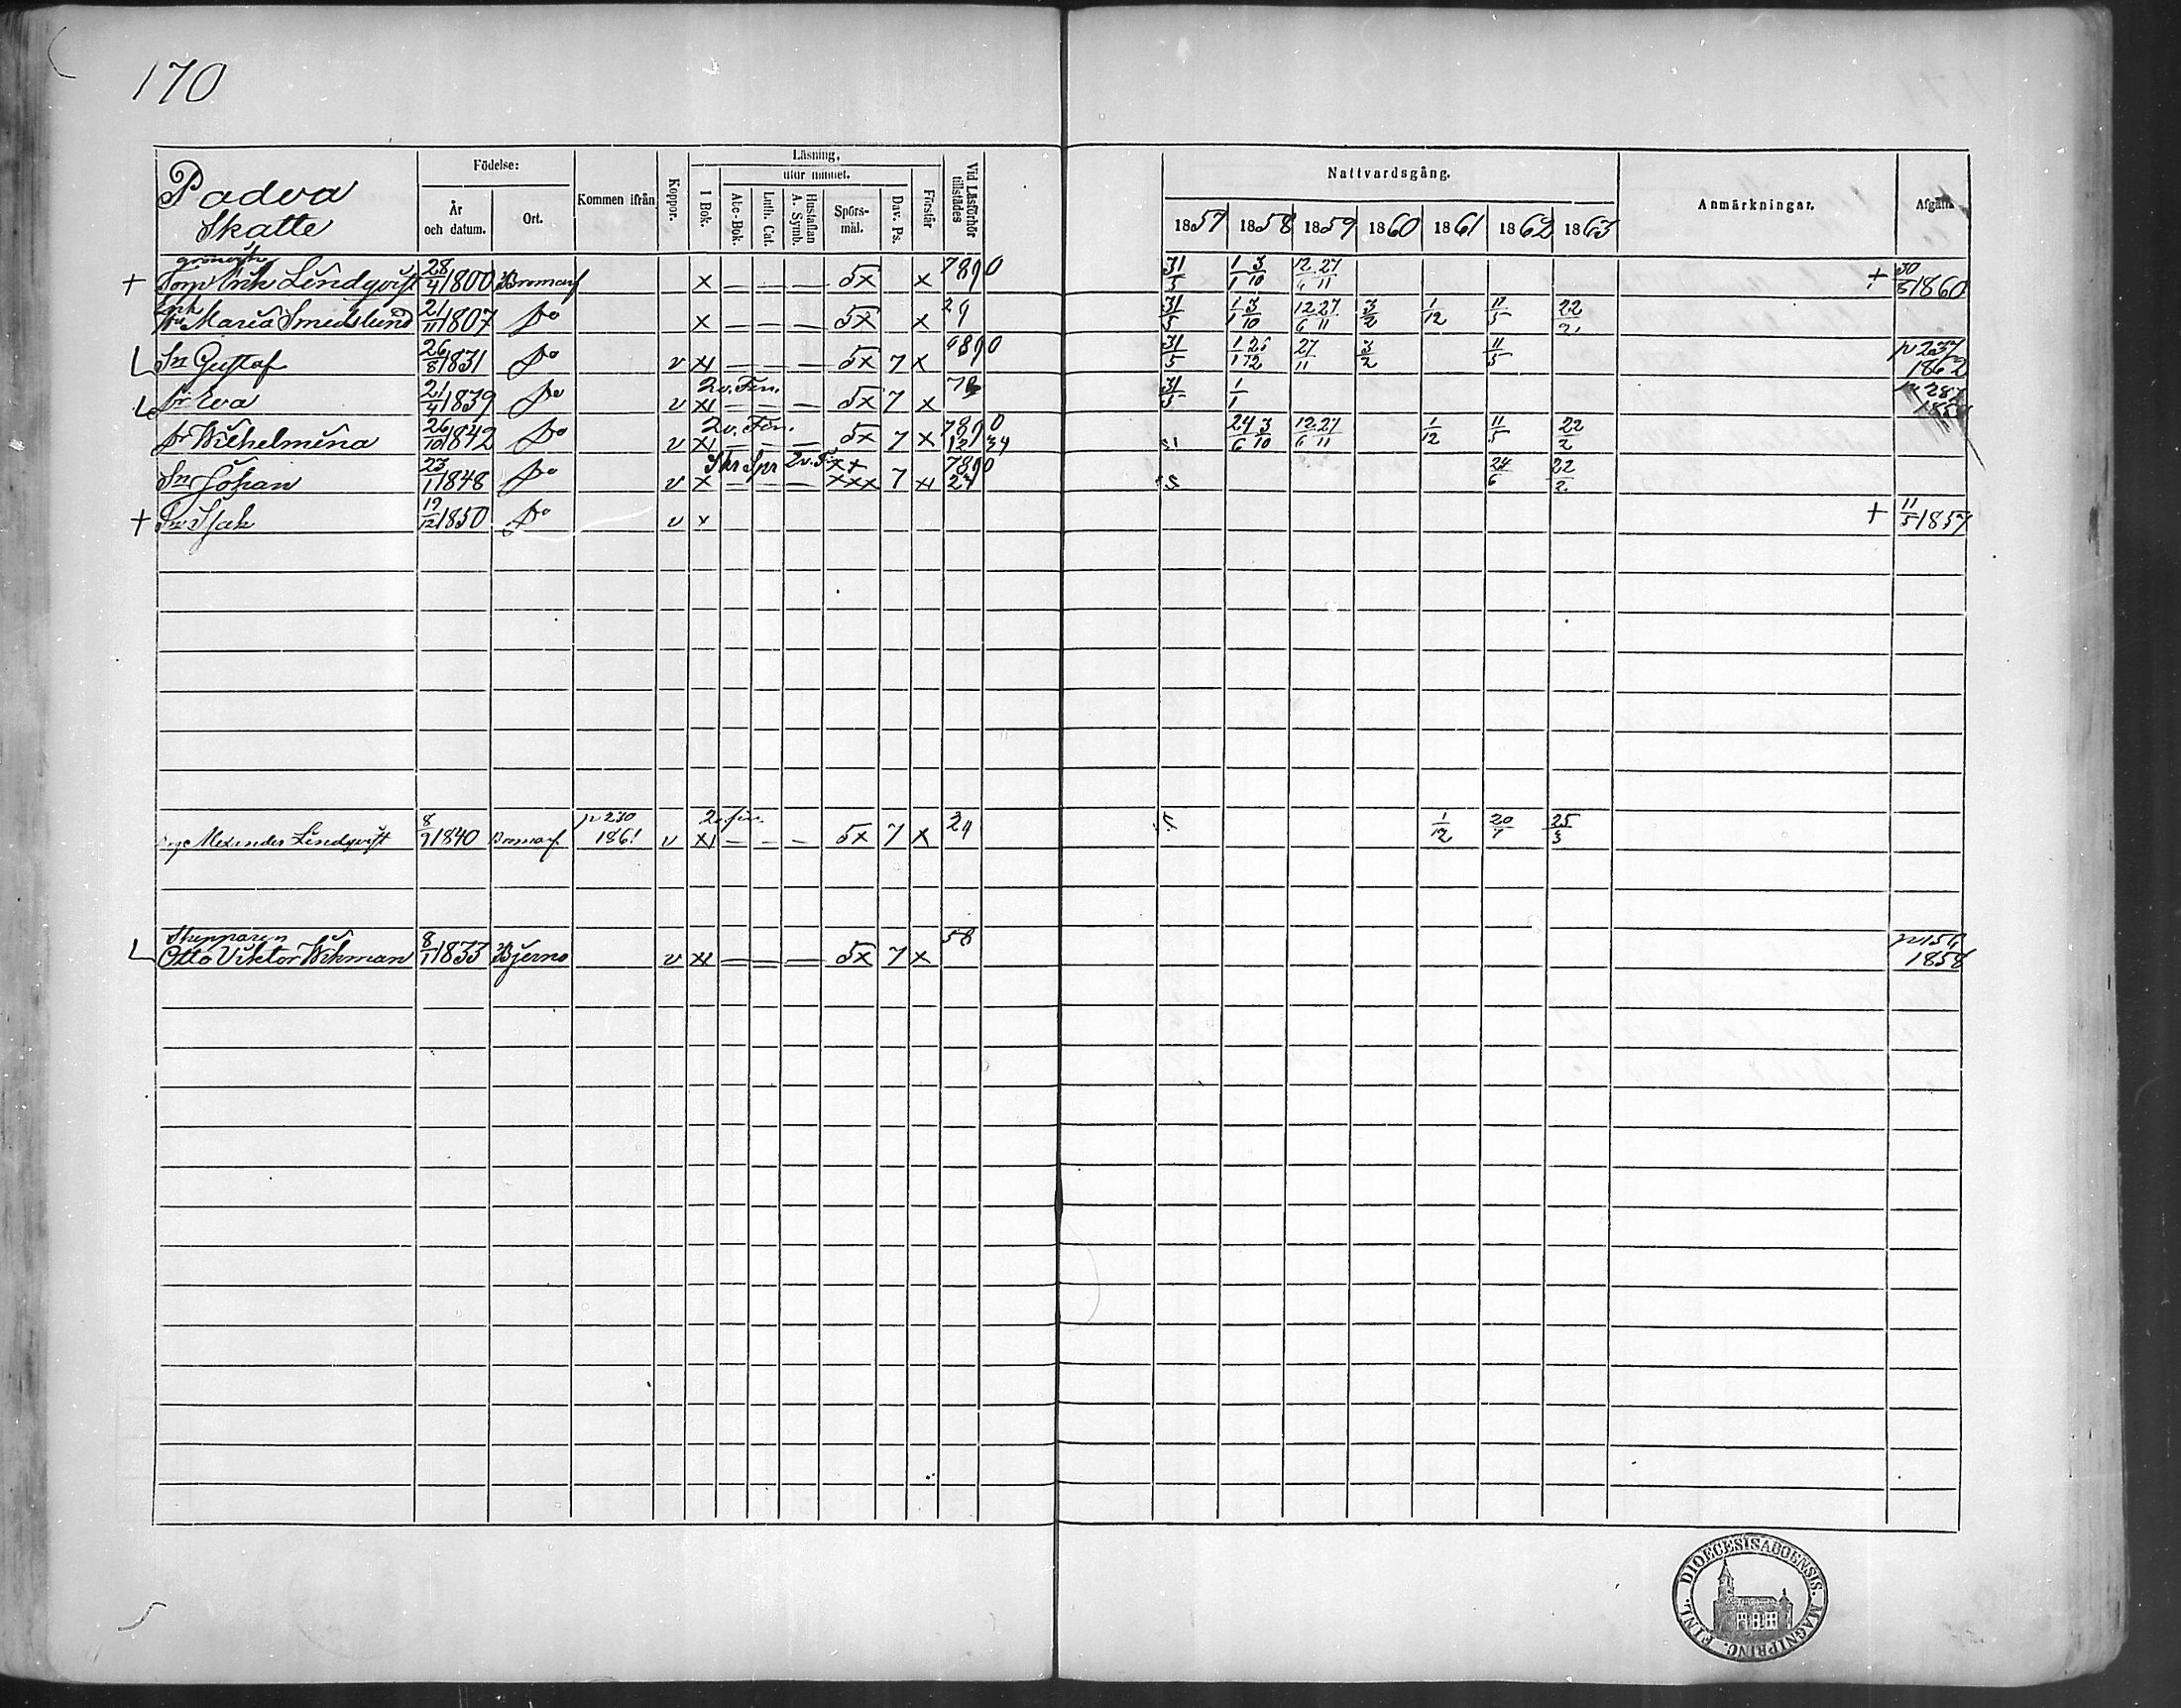 170
Padva
Skatte
Födelse:
År
och datum.
Ort.
Kommen ifrån
Koppor.
Läsning,
utur minnet.
I Bok.
Abc-Bok.
Luth. Cat.
Hustaflan
A. Symb.
Spörs-
mål.
Dav. Ps.
Förstår
Vid Läsförhör
tillstädes
Nattvardsgång.
1857 1858 1859 1860 1861 1862 1863
Anmärkningar.
+ Torp Erik Lindqvist 28/4 1800 Bromarf x — — — 5x x 7890 31/5 1/1 3/10 12/6 27/11 + 1860
Enk
Maria Smedslund 21/11 1807 Do x — — — 5x x 29 31/5 1/1 3/10 12/6 27/11 3/2 1/12 11/5 22/2
Sn Gustaf 26/8 1831 Do v x — — — 5x 7 x 6890 31/5 27/11 3/2 11/5 p 237
1862
2 v. Fin.
Dr Eva 21/4 1839 Do v x — — — 5x 7 x 31/5 1/1
2 v. Fin.
Dr Wilhelmina 26/10 1842 Do v x — — — 5x 7 x 7890 1234 24/6 3/10 12/6 27/11 1/12 11/5 22/2
Sn Johan 23/1 1848 Do v x — — — xxx 7 x 7890 24/6 22/2
+ Sn Isak 19/12 1850 Do v x + 11/5 1857
p 230 2 v. fin.
Alexander Lindqvist 8/9 1840 Bromarf 1861 v x — — — 5x 7 x 24 1/12 20/7 25/3
Skepparen
Otto Viktor Wikman 8/1 1833 Bjerno v x — — — 5x 7 x 58 p 154
1858
DIOECESIS ABOENSIS. MAGNI PRINC. FINL.